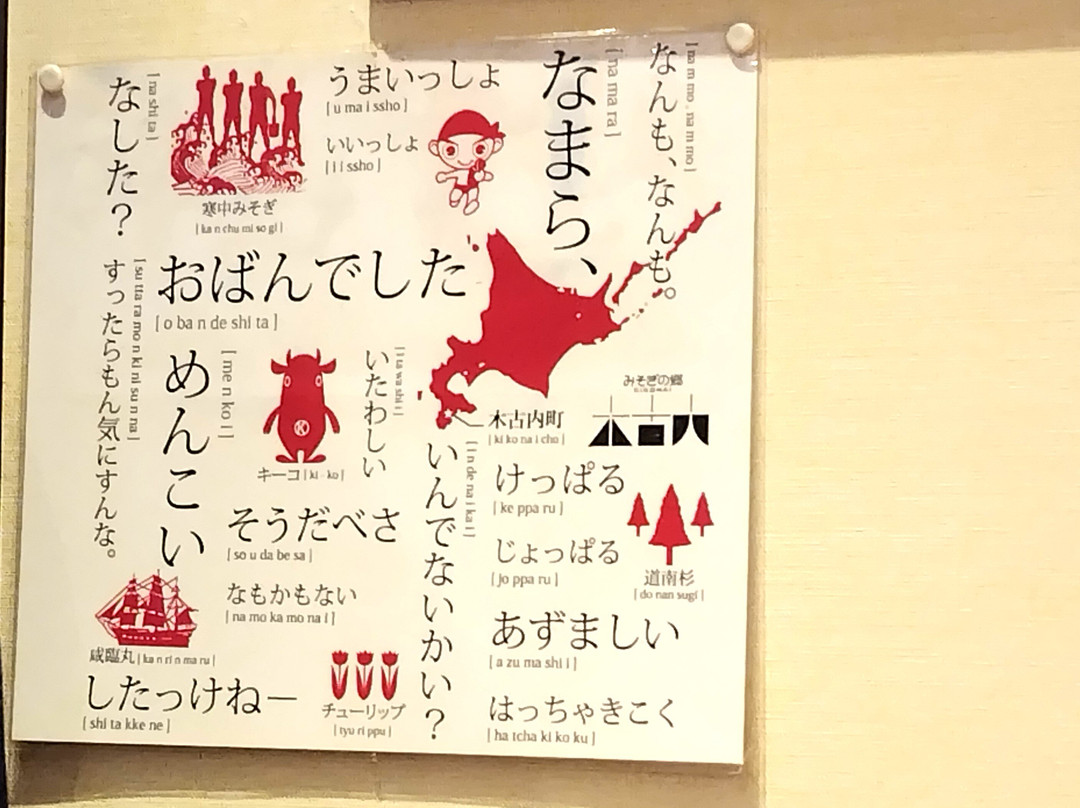 なした?
[ na shi ta ]
寒中みそぎ
[ ka n chu mi so gi ]
うまいっしょ
[ u ma i ssho ]
いいっしょ
[ i i ssho ]
なまら、
[ na ma ra ]
なんも、なんも。
[ na m mo . na m mo ]
おばんでした
[ o ba n de shi ta ]
すったらもん気にすんな。
[ su tta ra mo n ki ni su n na ]
めんこい
[ me n ko i ]
キーコ [ ki - ko ]
いたわしい
[ i ta wa shi i ]
みそぎの郷
木古内
木古内町
[ ki ko na i cho ]
いんでないかい?
[ i n de na i ka i ]
けっぱる
[ ke ppa ru ]
じょっぱる
[ jo ppa ru ]
道南杉
[ do nan sugi ]
そうだべさ
[ so u da be sa ]
なもかもない
[ na mo ka mo na i ]
咸臨丸 [ ka n ri n ma ru ]
したっけねー
[ shi ta kke ne ]
チューリップ
[ tyu ri ppu ]
あずましい
[ a zu ma shi i ]
はっちゃきこく
[ ha tcha ki ko ku ]